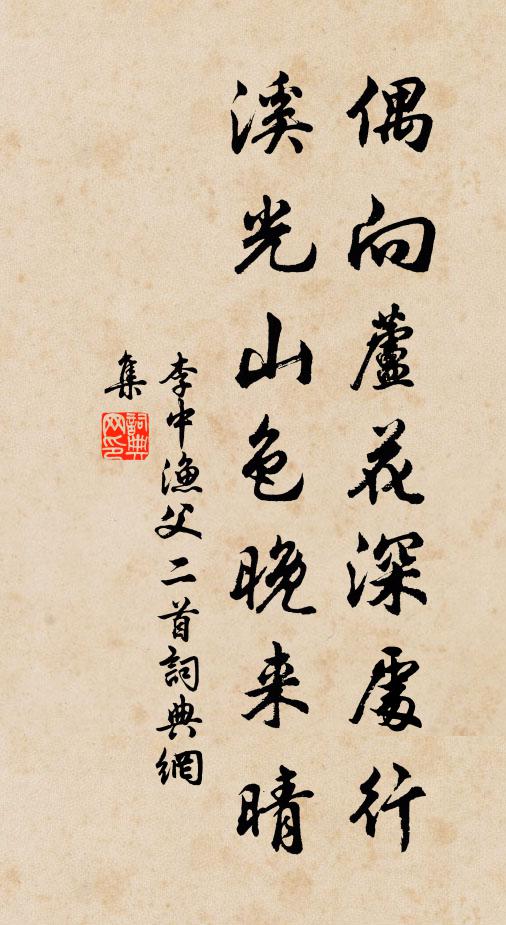 偶向蘆花深處行
溪光山色晚来晴
李中漁父二首詞典網
集
詞典
网印